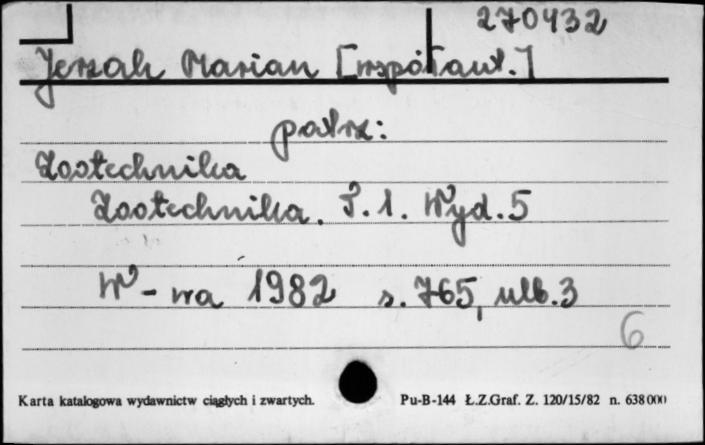 270432
Jerzak Marian [współaut.]
patrz:
Zootechnika
Zootechnika. T. 1. Wyd. 5
W-wa 1982 s. 765, nlb. 3
6
Karta katalogowa wydawnictw ciągłych i zwartych. Pu-B-144 Ł.Z.Graf. Z. 120/15/82 n. 638000